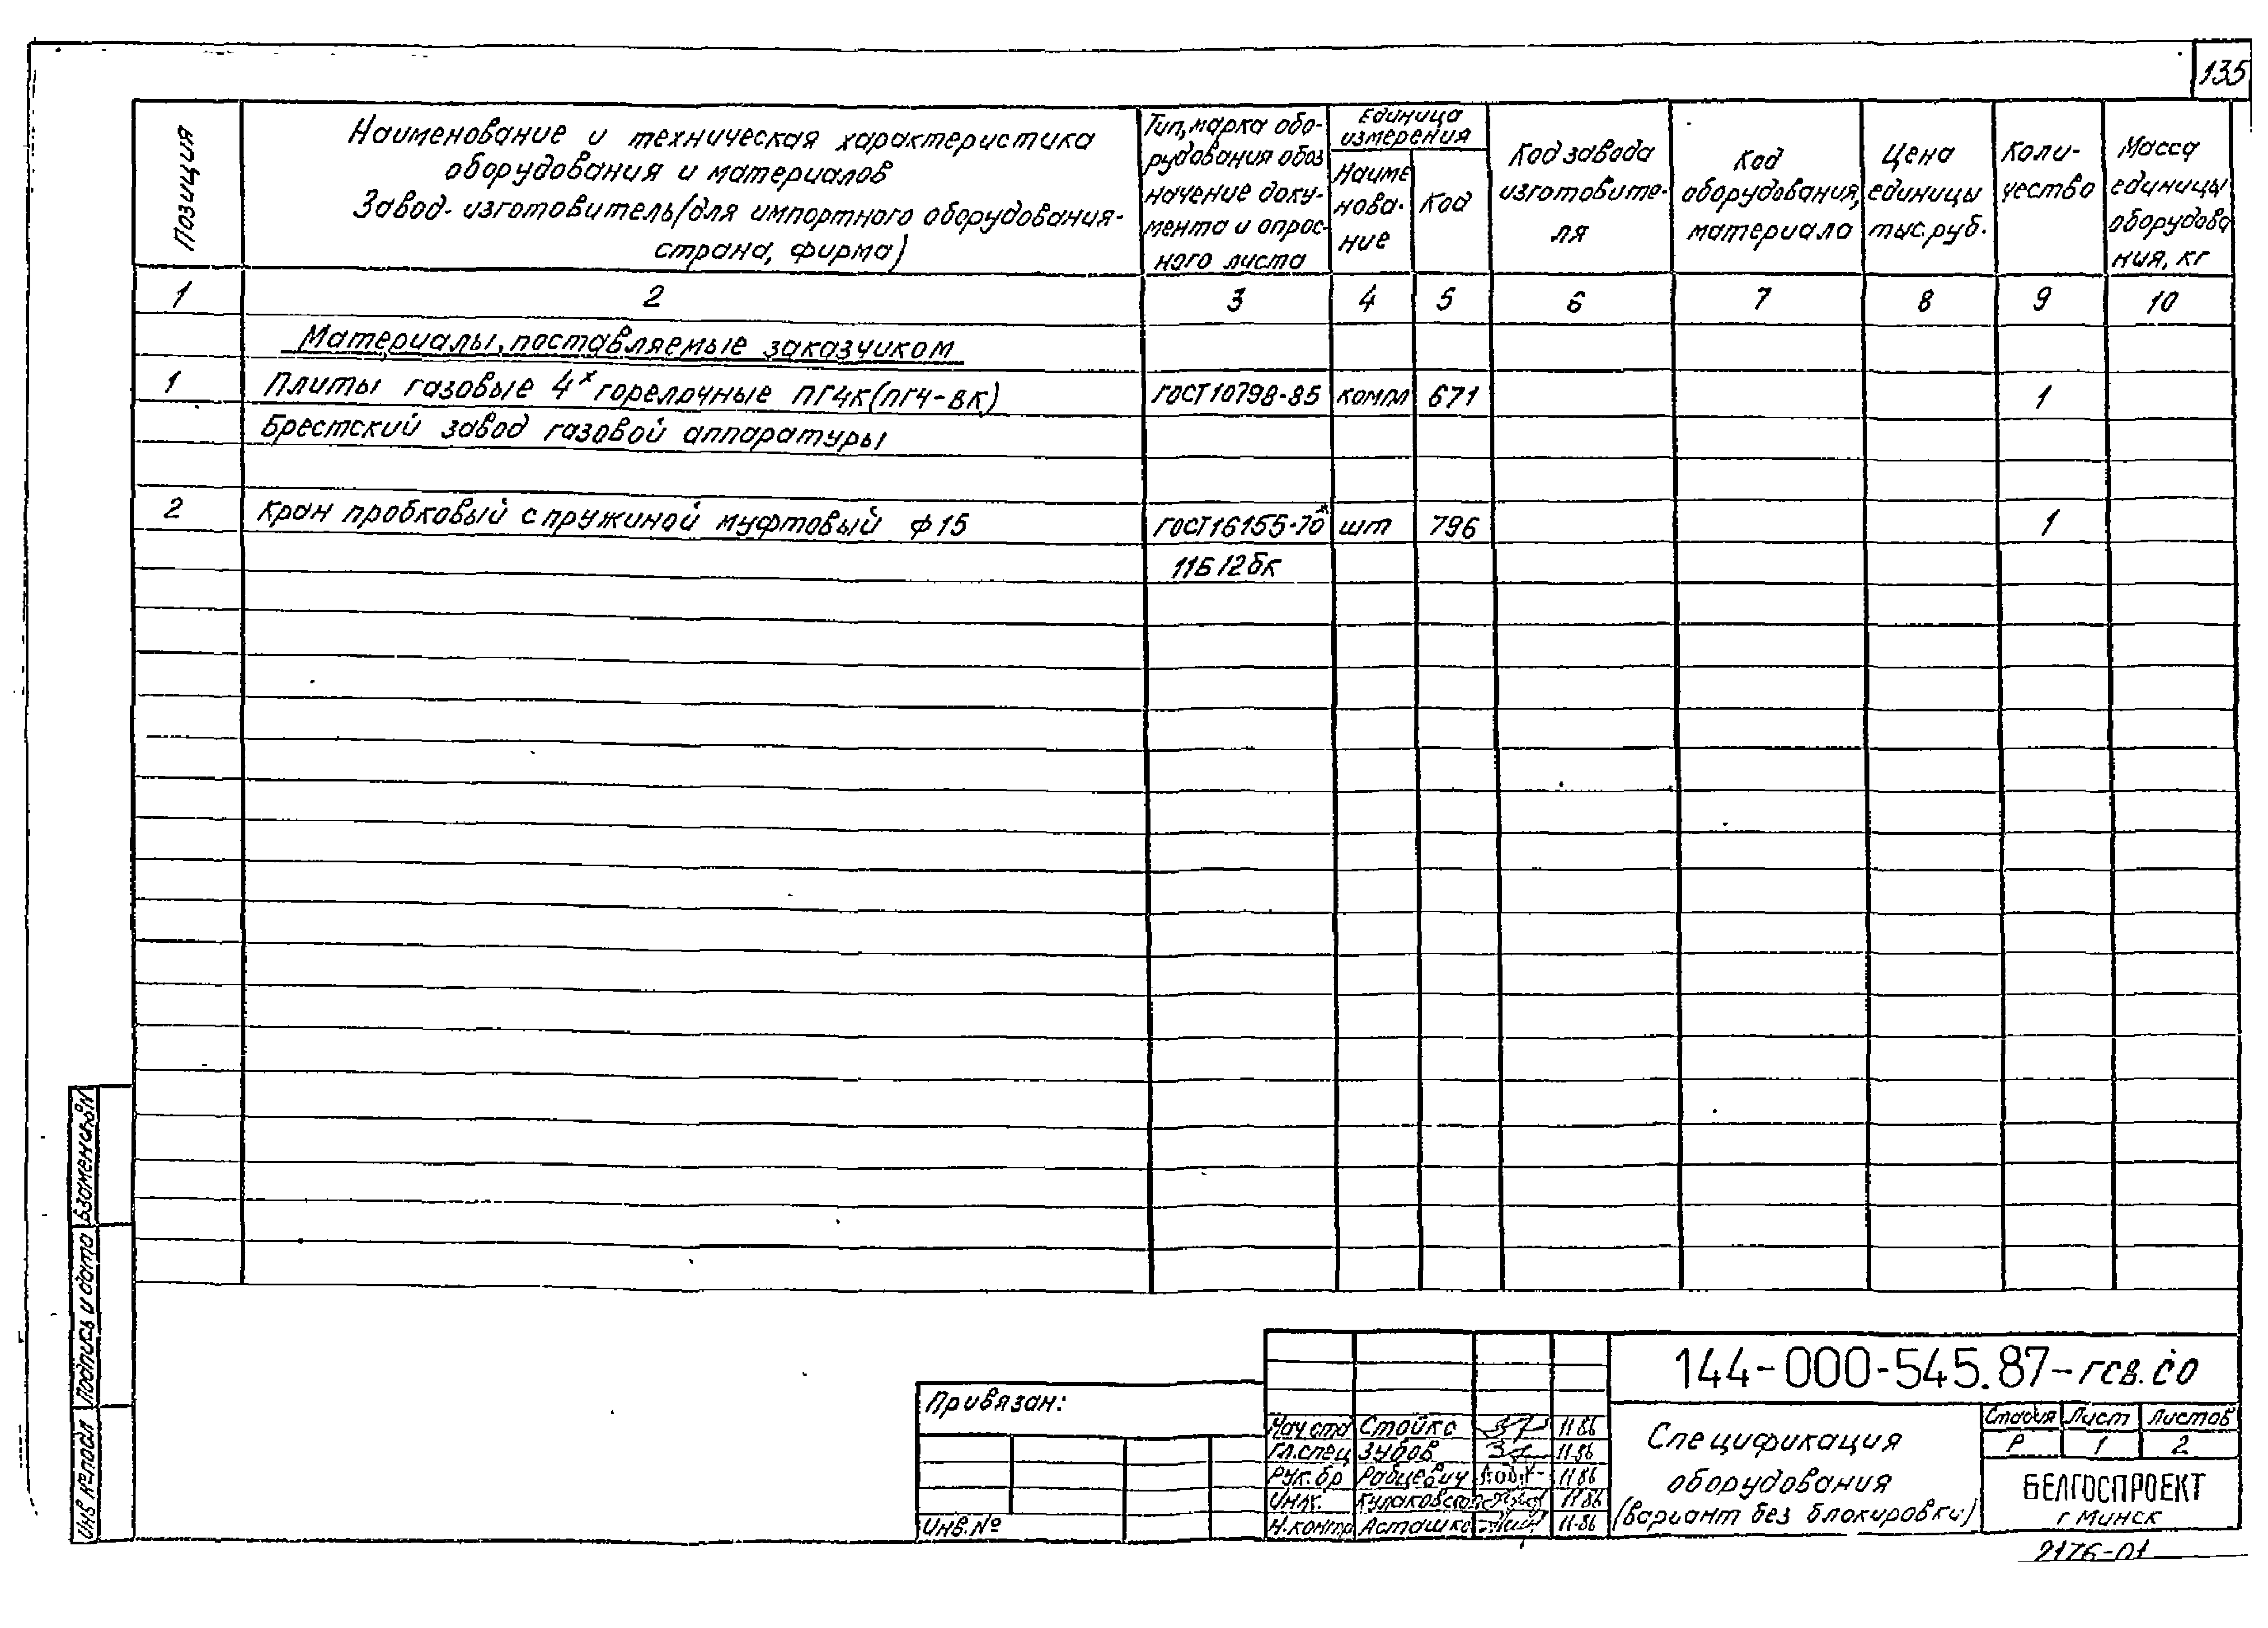 135
Позиция
Наименование и техническая характеристика
оборудования и материалов
Завод-изготовитель/для импортного оборудования-
страна, фирма)
Тип, марка обо-
рудования обоз
начение доку-
мента и опрос-
ного листа
Единица
измерения
Наиме
нова-
ние
Код
Код завода
изготовите-
ля
Код
оборудования,
материала
Цена
единицы
тыс.руб.
Коли-
чество
Масса
единицы
оборудова
ния, кг
1 2 3 4 5 6 7 8 9 10
Материалы, поставляемые заказчиком
1 Плиты газовые 4х горелочные ПГ4К(ПГ4-ВК) ГОСТ 10798-85 компл 671 1
Брестский завод газовой аппаратуры
2 Кран пробковый с пружиной муфтовый ф15 ГОСТ 16155-70х шт 796 1
11Б12бк
Взамен инв №
Подпись и дата
Инв № подл
Привязан:
Инв. №
Нач.ста Стойко 11 86
Гл.спец Зубов 11-86
Рук.бр Рабцевич 11 86
Инж. 11 86
Н.контр Асташко 11-86
144-000-545.87-гсв.со
Спецификация
оборудования
(вариант без блокировки)
Стадия Лист Листов
Р 1 2
БЕЛГОСПРОЕКТ
г Минск
2176-01